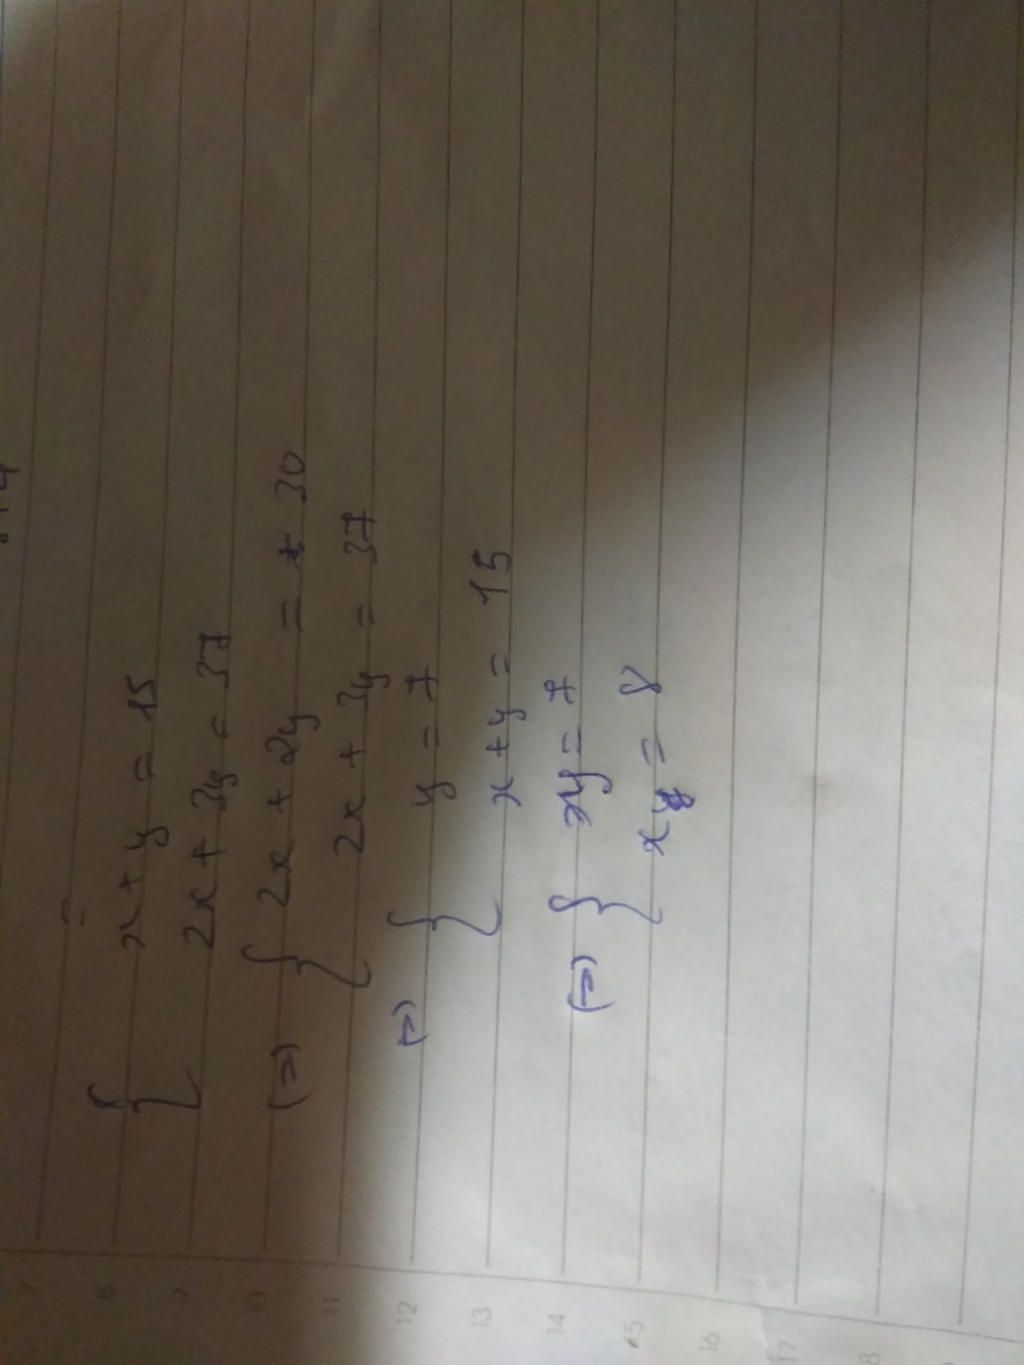 { x + y = 15
2x + 3y = 37
(=) { 2x + 2y = 30
2x + 3y = 37
(=) { y = 7
x + y = 15
(=) { y = 7
x = 8
7
8
9
10
11
12
13
14
15
16
17
18